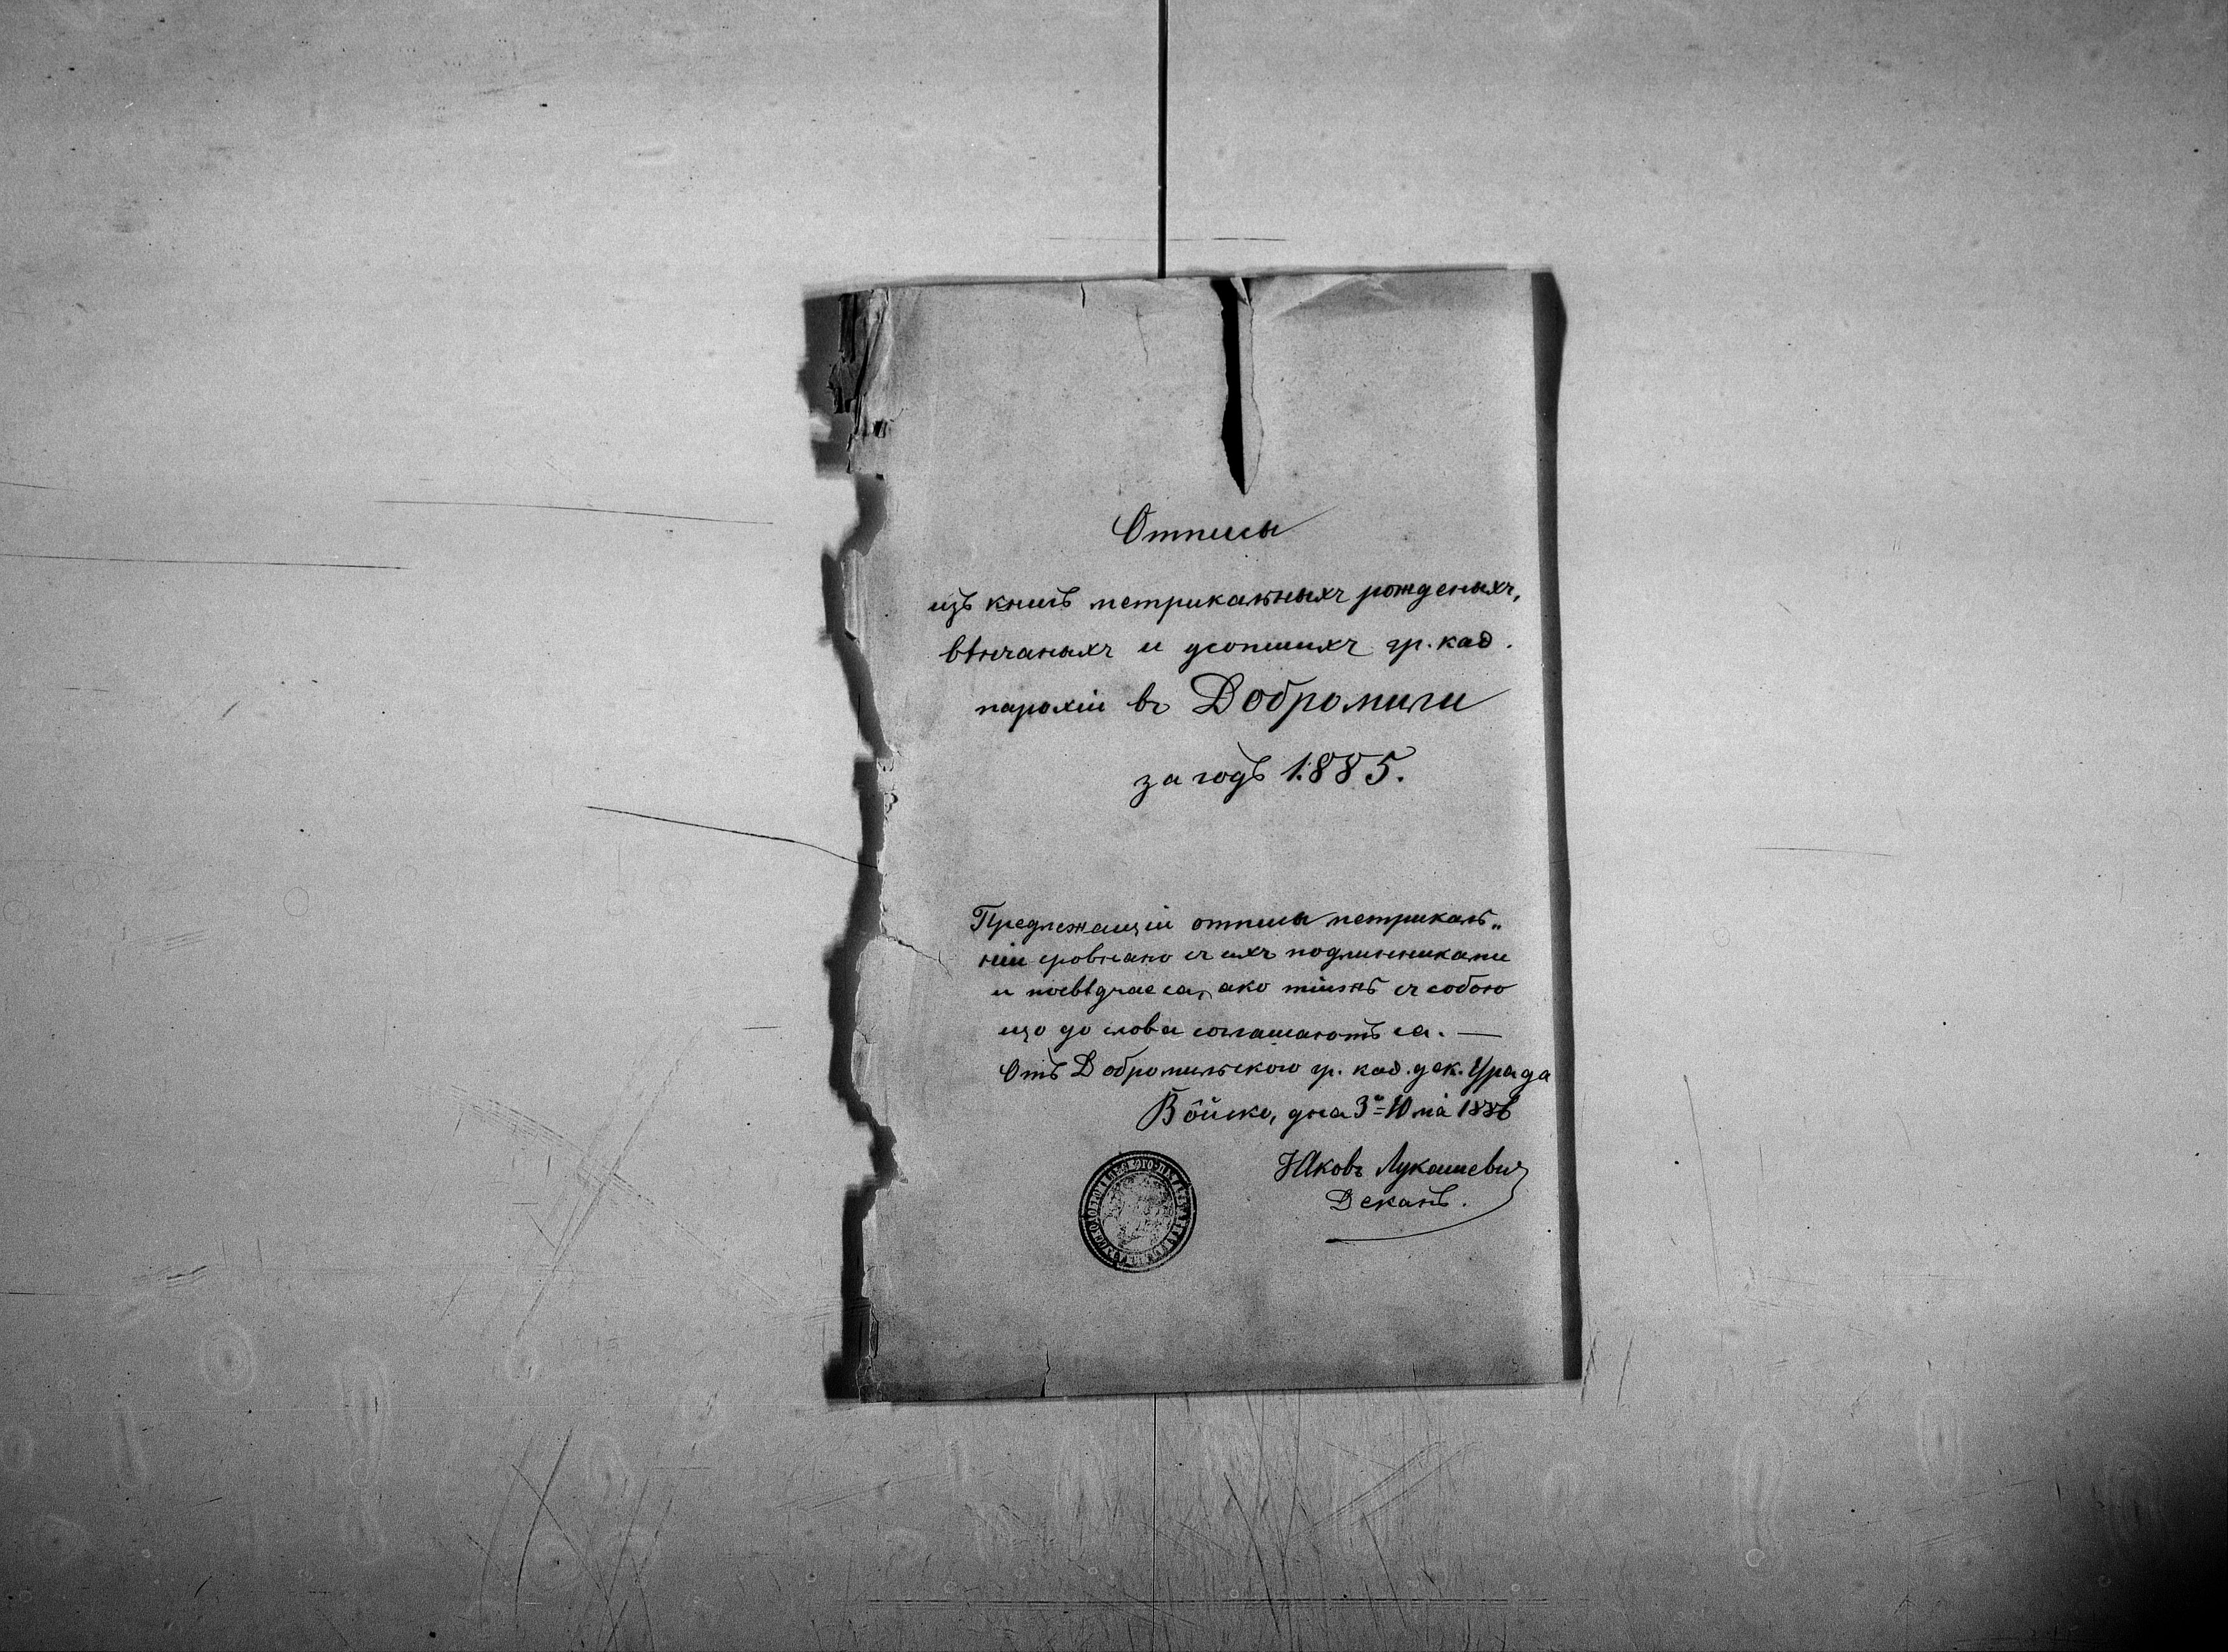 Отписы
изъ книгъ метрикальныхъ рожденыхъ,
вѣнчаныхъ и усопшихъ гр. каѳ.
парохіи въ Добромили
за годъ 1885.
Предлежащіи отписы метрикаль„
ніи сровнано съ ихъ подлинниками
и посвѣдчаеся, ако тіижъ съ собою
що до слова соглашаютъ ся. —
Отъ Добромильского гр. каѳ. дек. Уряда
Вôйско, дня 3 Юлія 1886
Яковъ Лукашевич
Деканъ.